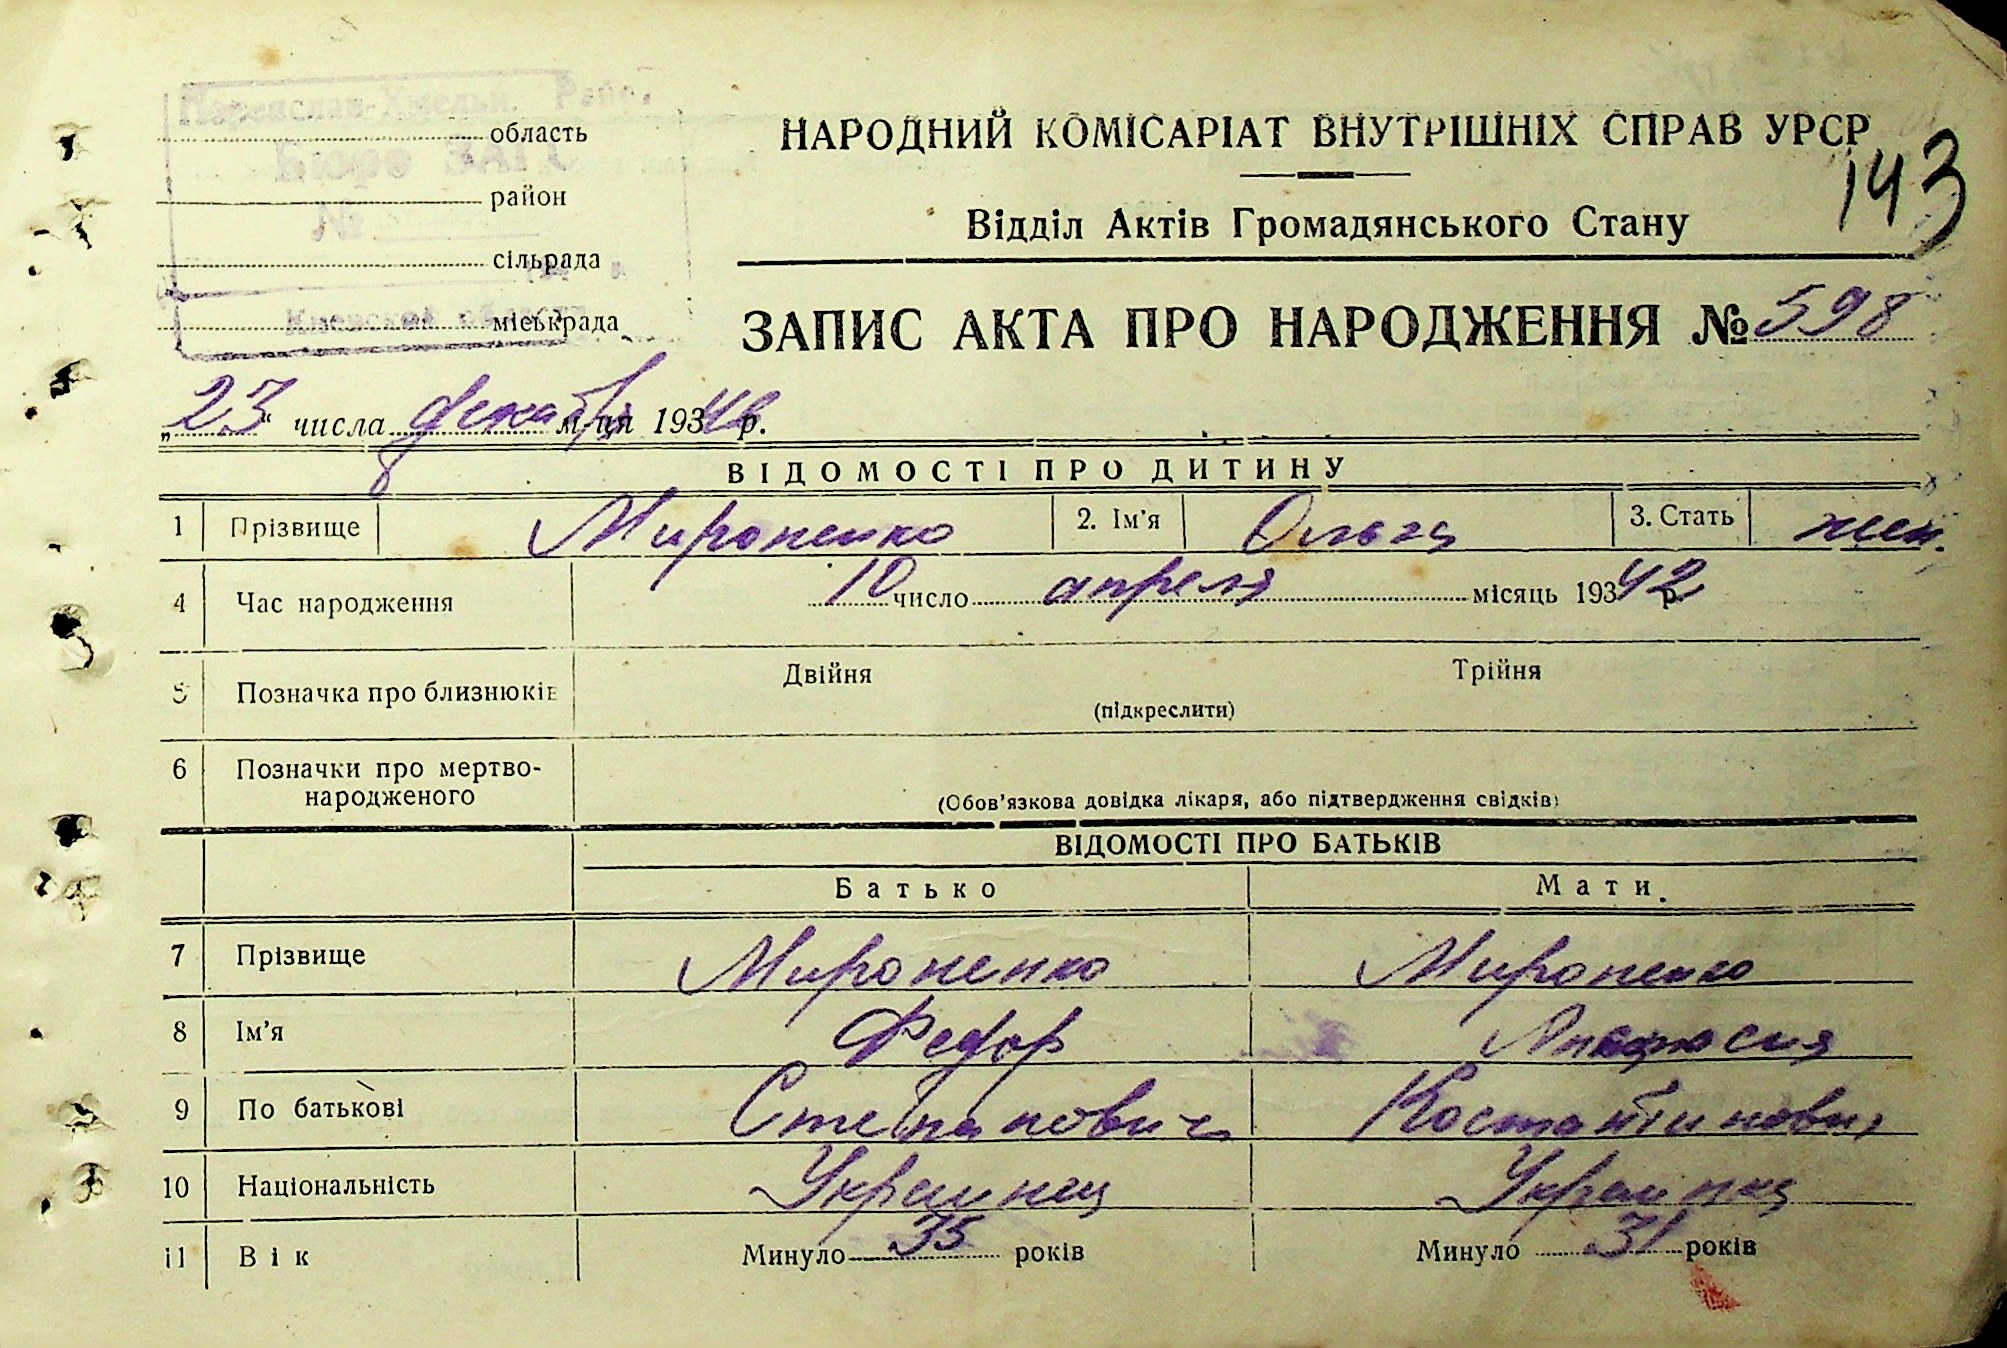 Переяслав-Хмельн. Рай
область
Бюро ЗАГС
район
№
сільрада
Киевской области
міськрада
НАРОДНИЙ КОМІСАРІАТ ВНУТРІШНІХ СПРАВ УРСР
143
Відділ Актів Громадянського Стану
ЗАПИС АКТА ПРО НАРОДЖЕННЯ № 598
„23“ числа декабря м-ця 193 р.
ВІДОМОСТІ ПРО ДИТИНУ
1 Прізвище Мироненко 2. Ім'я Ольга 3. Стать жен.
4 Час народження 10 число апреля місяць 19342 р.
5 Позначка про близнюків Двійня Трійня
(підкреслити)
6 Позначки про мертво-
народженого
(Обов'язкова довідка лікаря, або підтвердження свідків)
ВІДОМОСТІ ПРО БАТЬКІВ
Батько Мати
7 Прізвище Мироненко Мироненко
8 Ім'я Федор
9 По батькові Степанович Костантиновн
10 Національність Украинец Украинка
11 Вік Минуло 35 років Минуло 31 років